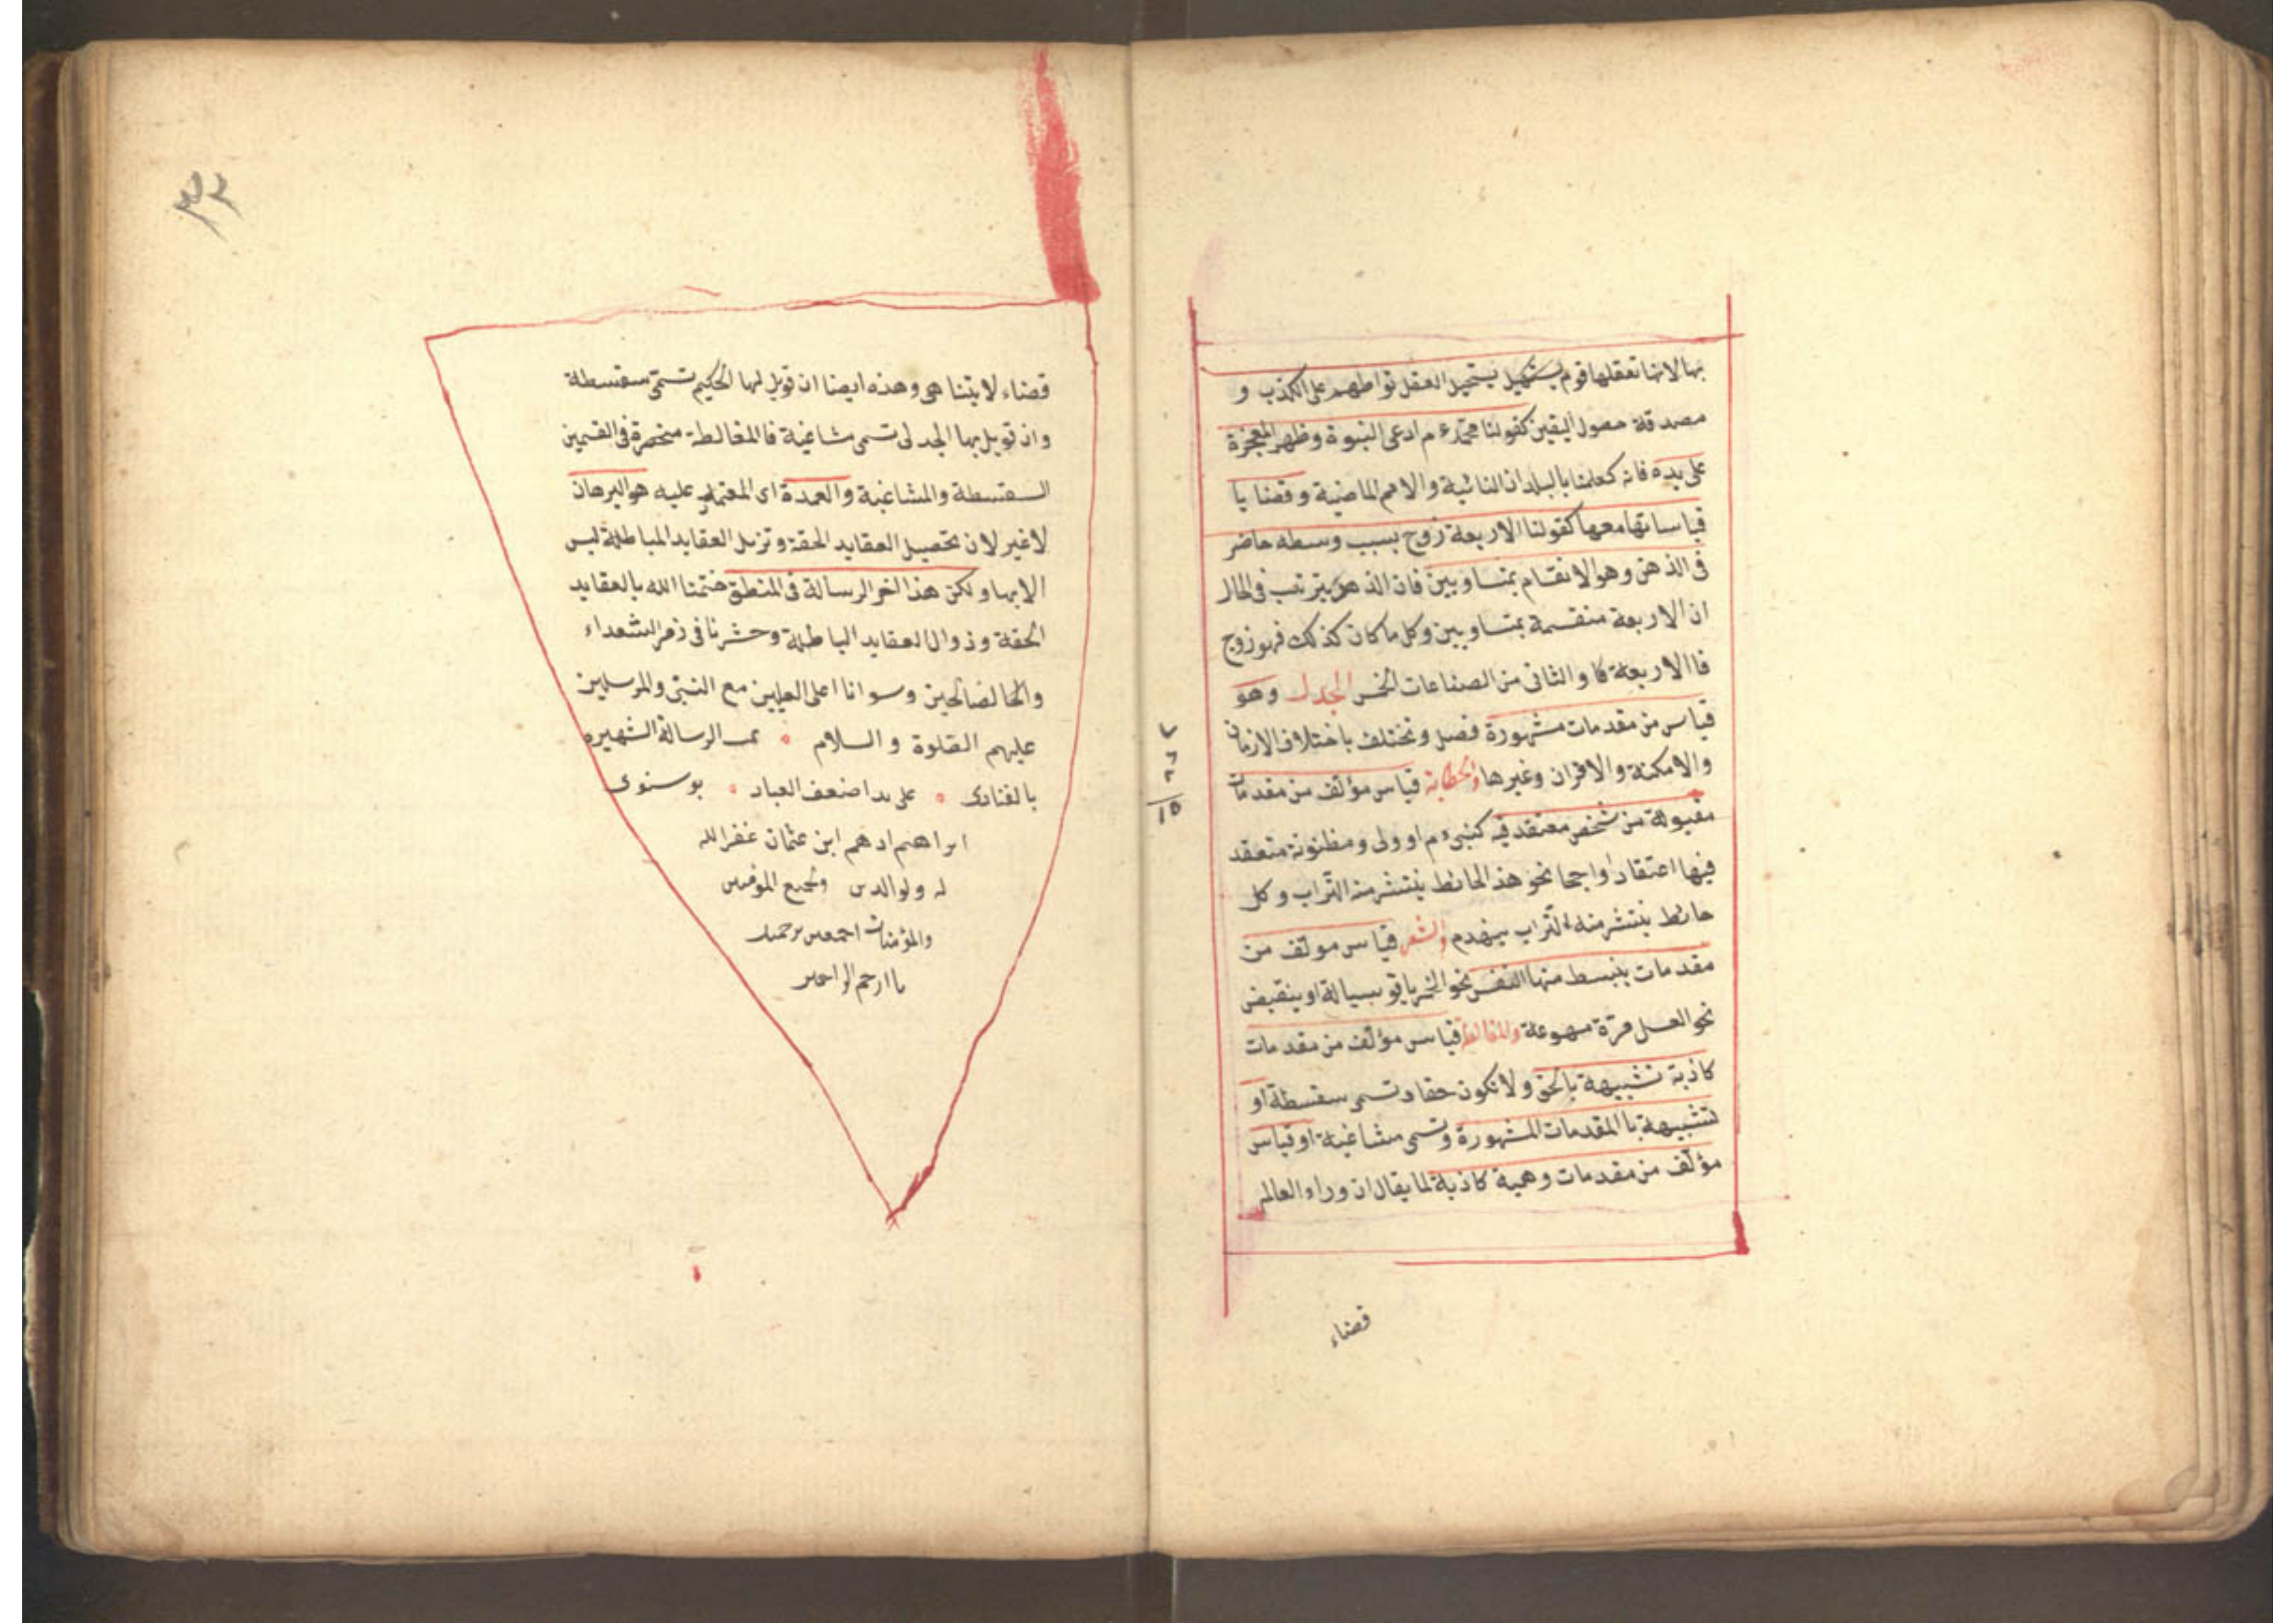 بها لانها تعقلها قوم يستحيل العقل تواطهم على الكذب و
مصدقة حصول اليقين كقولنا محمد ع م ادعى النبوة وظهر المعجزة
على يده فانه كعلمنا بالبلدان النائية والامم الماضية وقضايا
قياساتها معها كقولنا الاربعة زوج بسبب وسطه حاضر
فى الذهن وهو الانقسام بمتساويين فان الذهن يترتب فى الحال
ان الاربعة منقسمة بمتساويين وكل ما كان كذلك فهو زوج
فا الاربعة كا والثانى من الصناعات الخمس الجدل وهو
قياس من مقدمات مشهورة فصل وتختلف باختلاف الازمان
والامكنة والاقران وغيرها والخطابة قياس مؤلف من مقدمات
مقبولة من شخص معتقد فيه كنبى ع م او ولى ومظنونة متعقد
فيها اعتقادا واجحا نحو هذ الحائط ينتشر منه التراب وكل
حائط ينتشر منه التراب ينهدم والشعر قياس مولف من
مقدمات ينبسط منها النفس نحو الخمر ياقو سيالة او ينقبض
نحو العسل مرة مهوعة والمغالطة قياس مؤلف من مقدمات
كاذبة تشبيهة بالحق ولا تكون حقا وتسمى سفسطة او
تشبيهة با المقدمات المشهورة وتسمى مشاغبة او قياس
مؤلف من مقدمات وهمية كاذبة لما يقال ان وراء العالم
قضاء
٧
٦
٢
١٥
قضاء لا يتناهى وهذه ايضا ان قوبل لها الحكيم تسمى سفسطة
وان قوبل بها الجدلى تسمى مشاغبة فا المغالطة منحصرة فى القسمين
السفسطة والمشاغبة والعمدة اى المعتمد عليه هو البرهان
لا غير لان تحصيل العقايد الحقة وتزيل العقايد المباطلة ليس
الا بها ولكن هذا اخر الرسالة فى المنطق ختمنا الله بالعقايد
الحقة وزوال العقايد الباطلة وحشرنا فى زمر السعداء
والخا لصالحين وسوانا اعلى العليين مع النبى والمرسلين
عليهم الصلوة والسلام ٥ تمت الرسالة الشهيره
بالفنارى ٥ على يد اضعف العباد ٥ بوسنوى
ابراهيم ادهم ابن عثمان غفر الله
له ولوالدين ولجميع المؤمنين
والمؤمنات اجمعين برحمتك
يا ارحم الراحمين